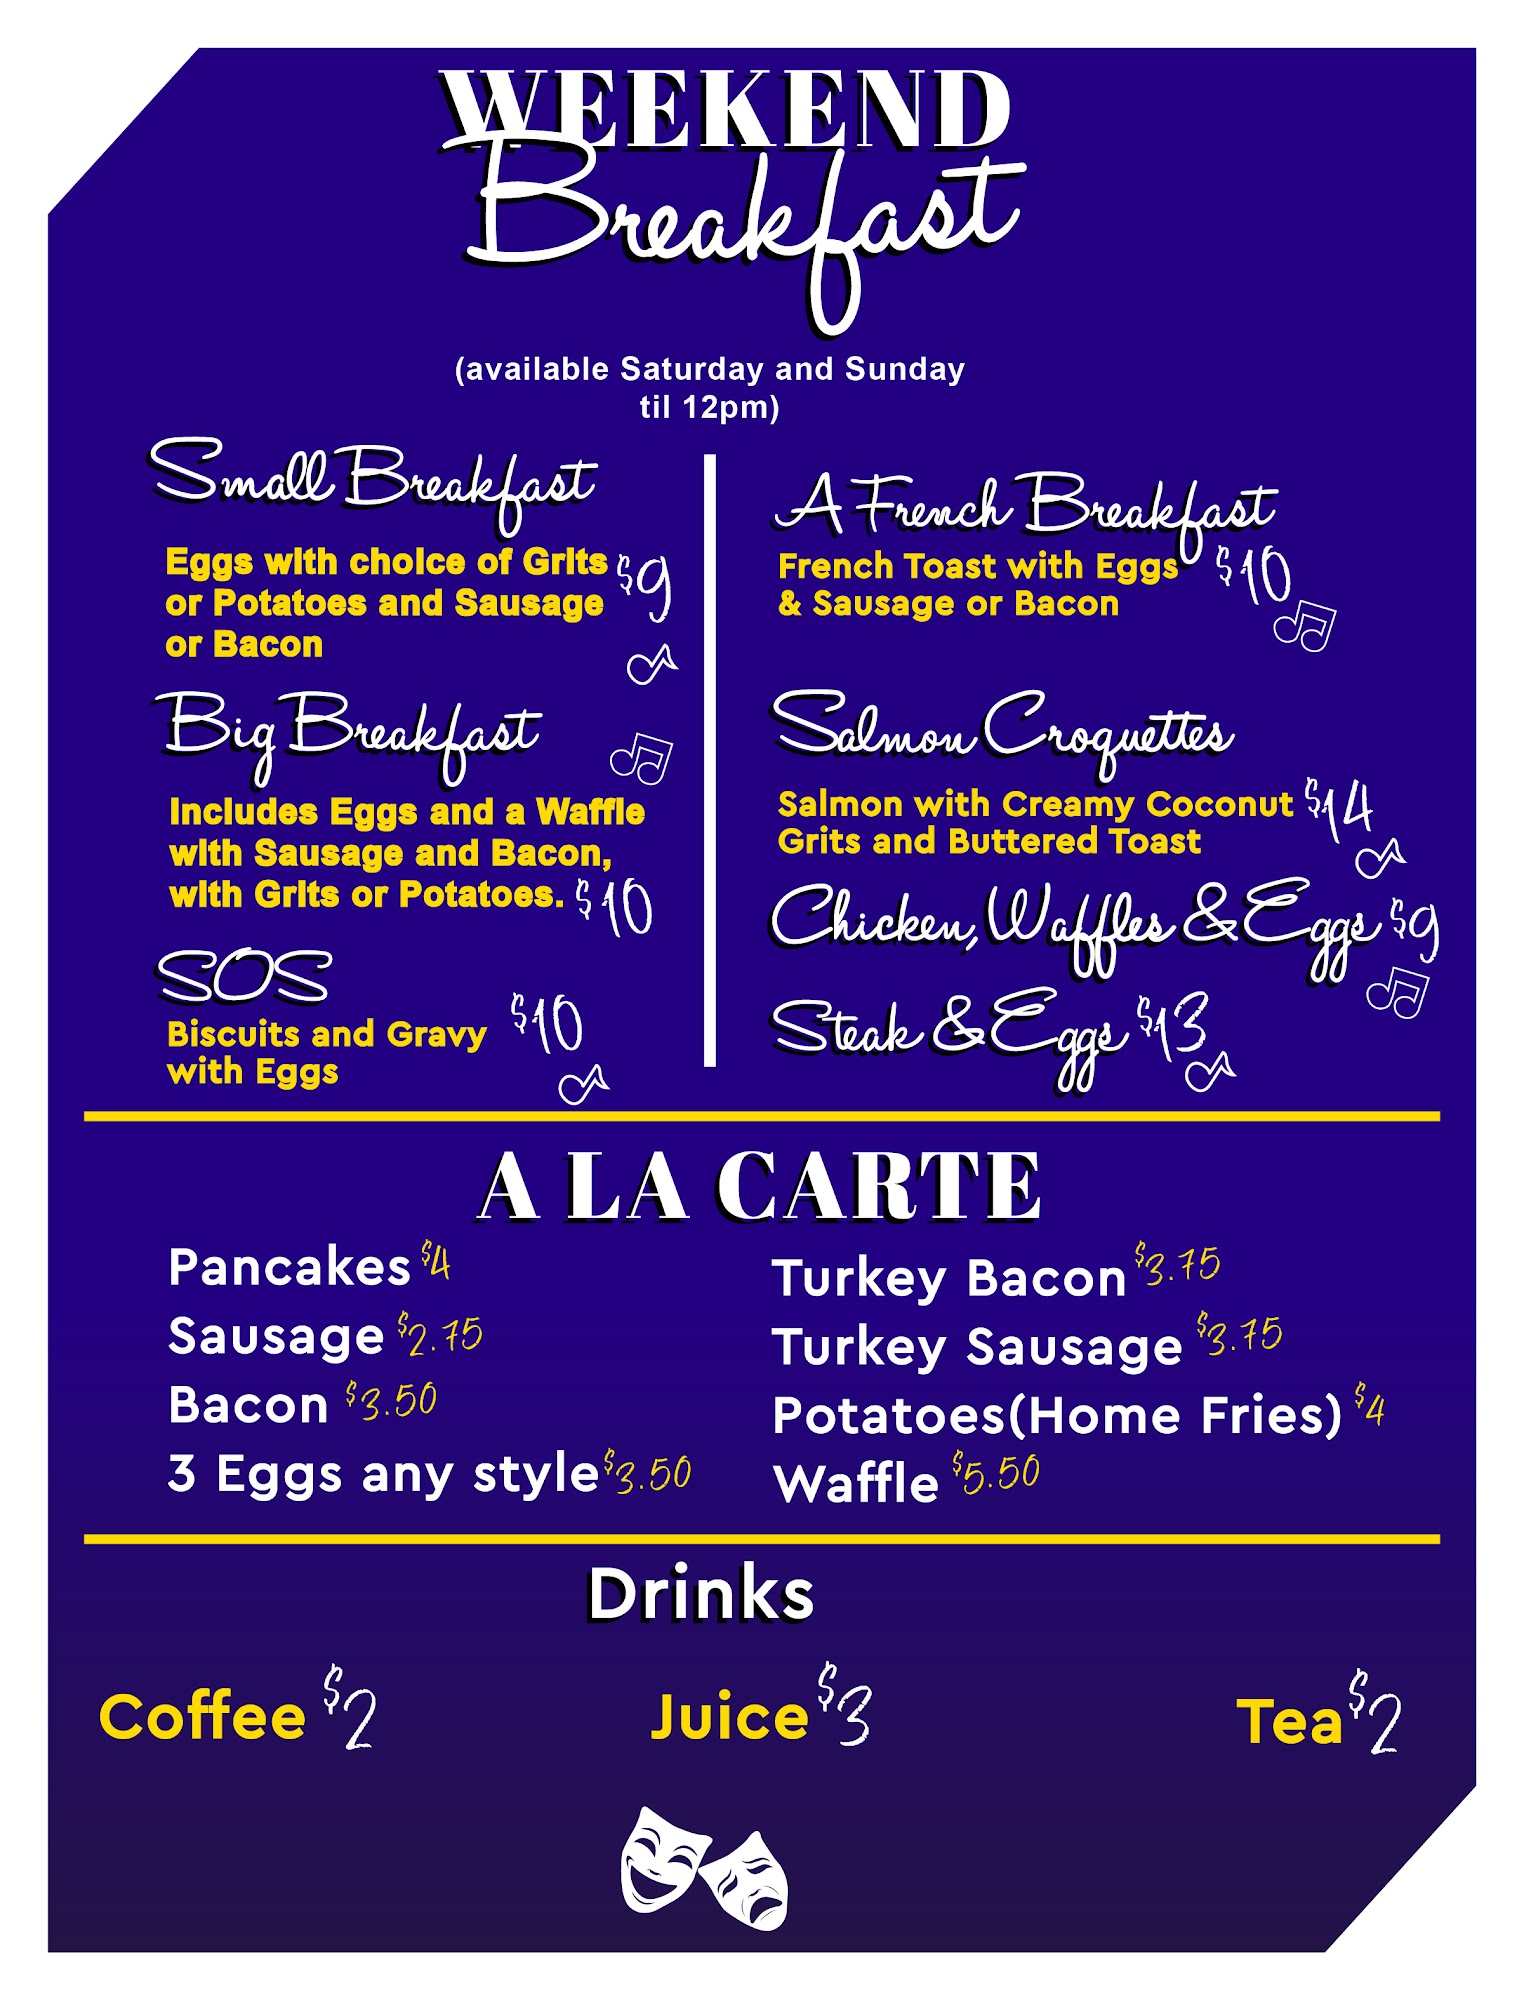 WEEKEND
Breakfast
(available Saturday and Sunday
til 12pm)
Small Breakfast
Eggs with choice of Grits $9
or Potatoes and Sausage
or Bacon
Big Breakfast
Includes Eggs and a Waffle
with Sausage and Bacon,
with Grits or Potatoes. $10
SOS
Biscuits and Gravy $10
with Eggs
A French Breakfast
French Toast with Eggs $10
& Sausage or Bacon
Salmon Croquettes
Salmon with Creamy Coconut $14
Grits and Buttered Toast
Chicken, Waffles & Eggs $9
Steak & Eggs $13
A LA CARTE
Pancakes $4
Sausage $2.75
Bacon $3.50
3 Eggs any style $3.50
Turkey Bacon $3.75
Turkey Sausage $3.75
Potatoes(Home Fries) $4
Waffle $5.50
Drinks
Coffee $2
Juice $3
Tea $2